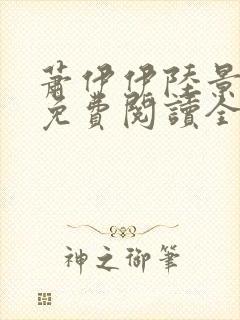 蕭伊伊陸景
免費閱讀全
神之御筆